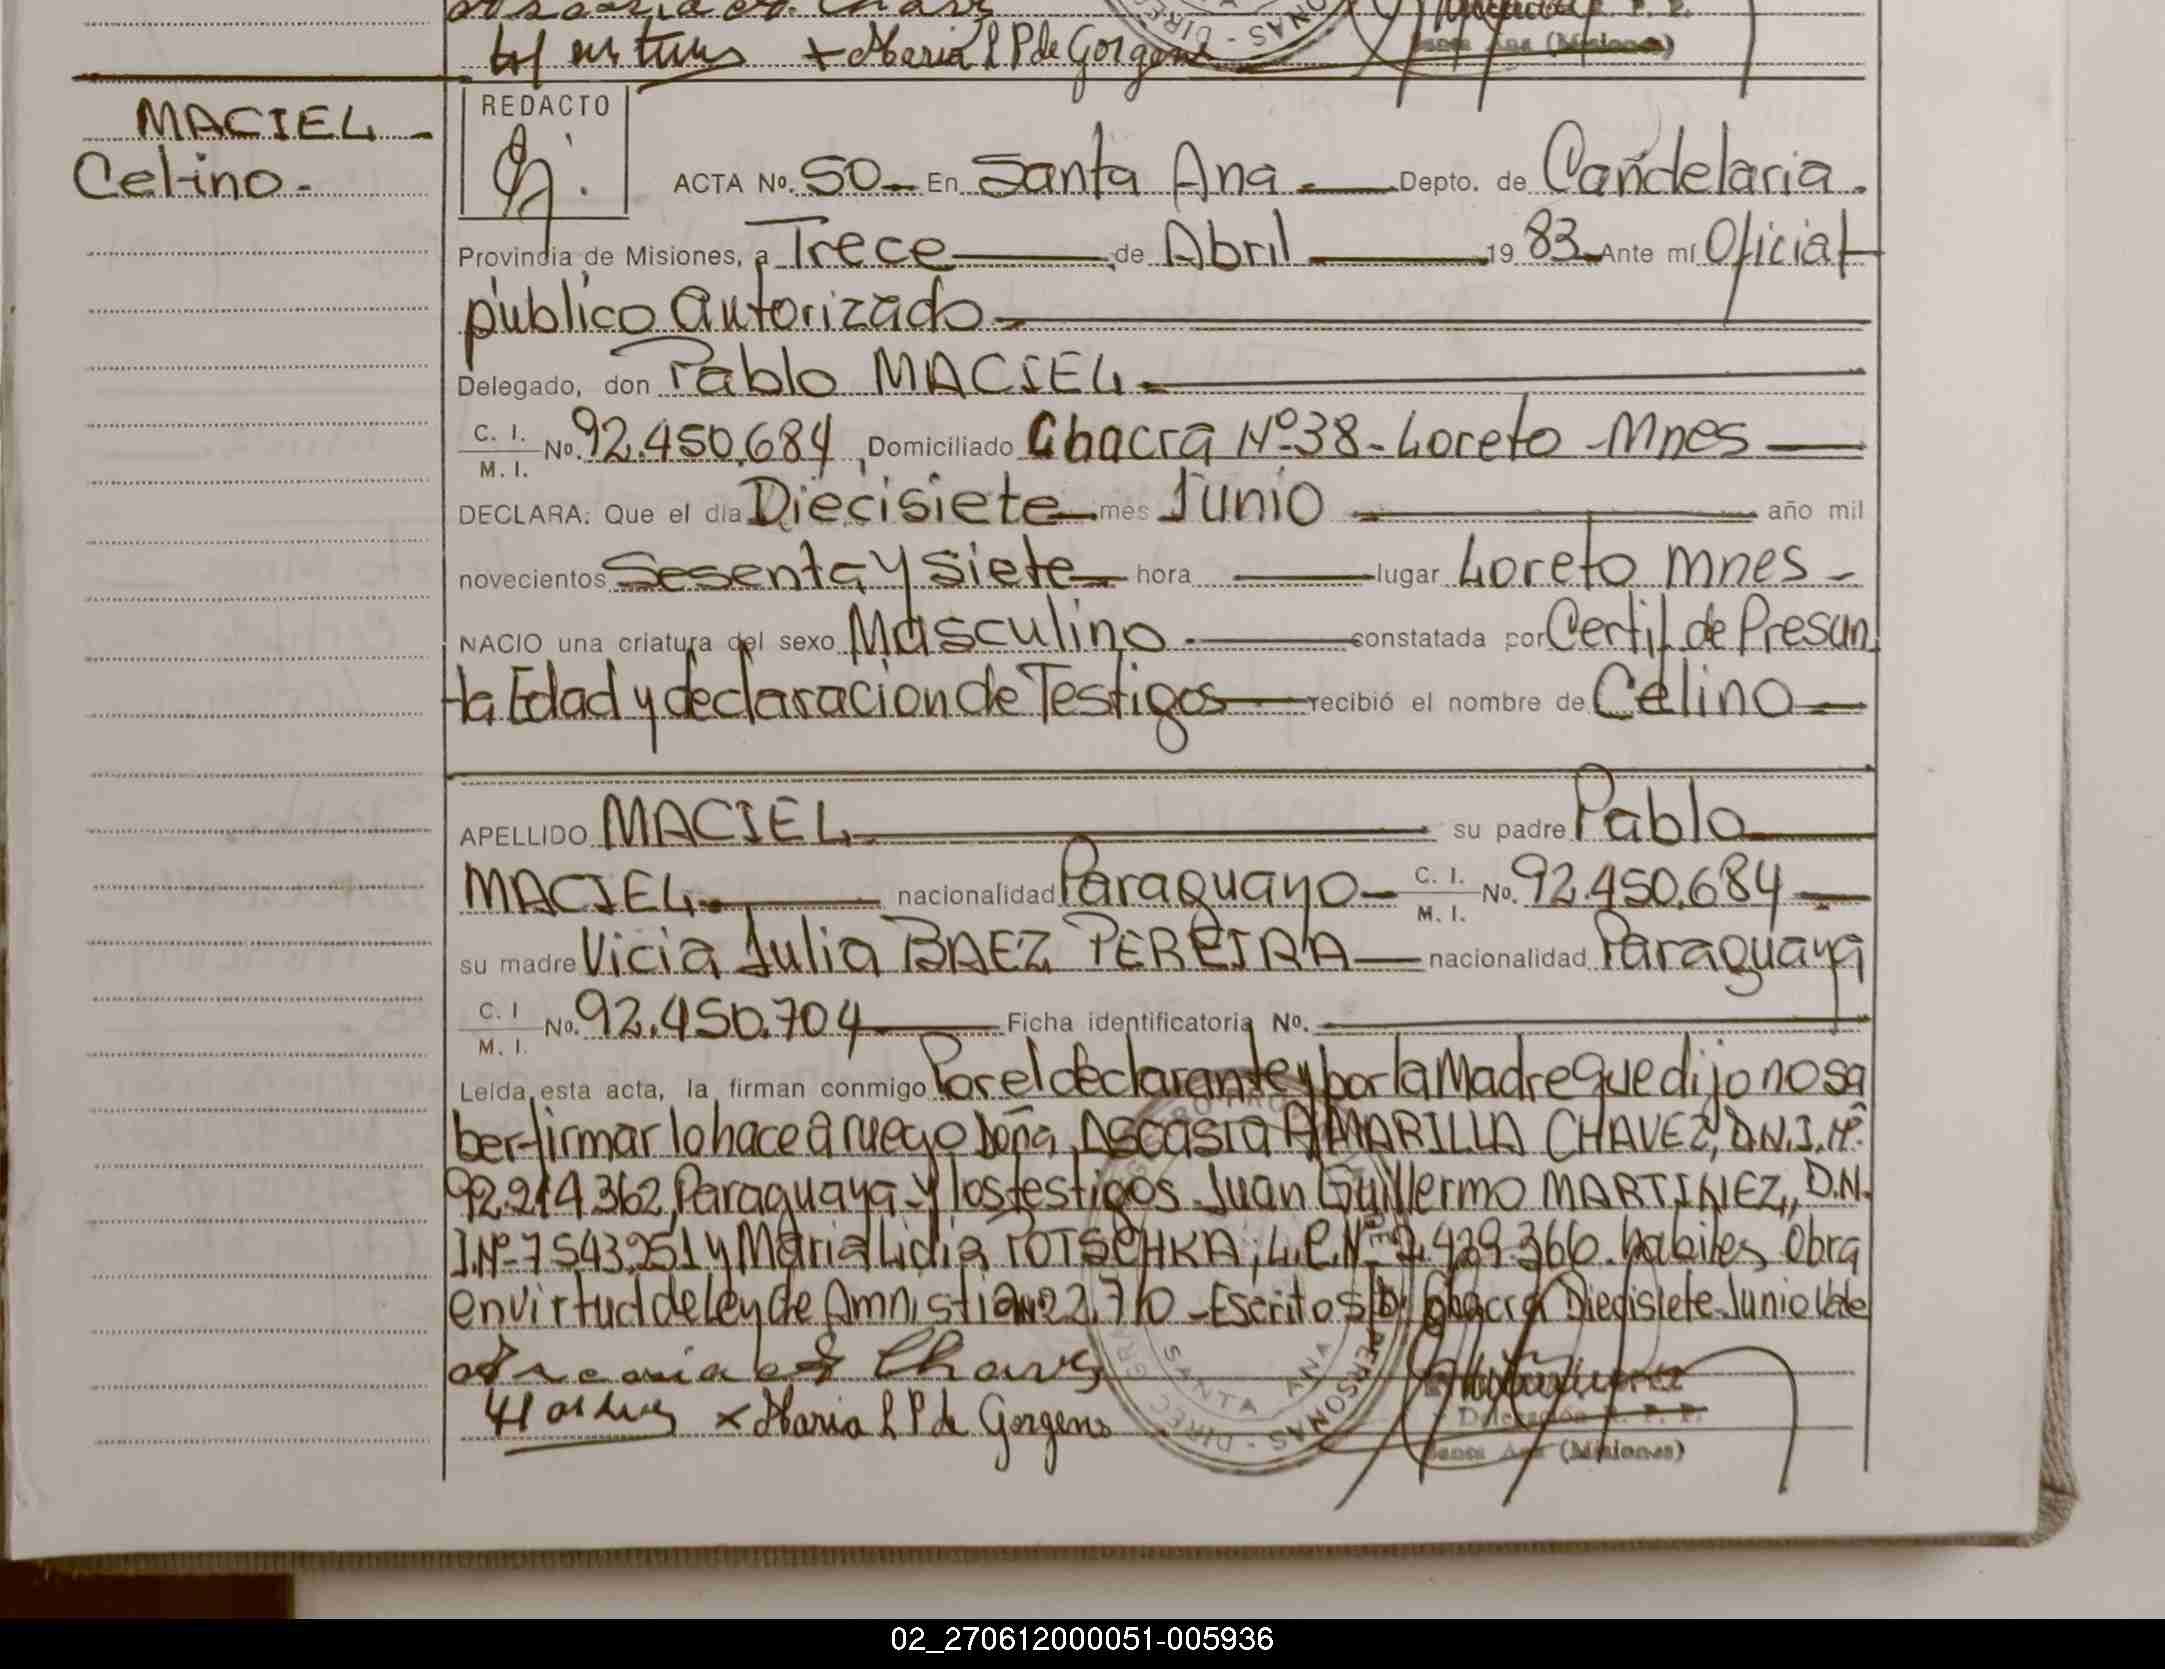 + Maria L P de Gorgens
Santa Ana (Misiones)
MACIEL -
Celino -
REDACTO
ACTA No. 50 - En Santa Ana - Depto. de Candelaria.
Provincia de Misiones, a Trece de Abril 1983 Ante mí Oficial
público autorizado -
Delegado, don Pablo MACIEL -
C. I. M. I. No. 92.450.684, Domiciliado Chacra Nº 38 - Loreto - Mnes
DECLARA: Que el día Diecisiete mes Junio año mil
novecientos Sesenta y Siete hora lugar Loreto Mnes -
NACIO una criatura del sexo Masculino - constatada por Certif. de Presun
ta Edad y declaracion de Testigos recibió el nombre de Celino
APELLIDO MACIEL su padre Pablo
MACIEL nacionalidad Paraguayo - C. I. M. I. No. 92.450.684
su madre Vicia Julia BAEZ PEREIRA nacionalidad Paraguaya
C. I M. I. No. 92.450.704 Ficha identificatoria No.
Leída esta acta, la firman conmigo Por el declarante y por la Madre que dijo no sa
ber firmar lo hace a ruego Doña Ascasia AMARILLA CHAVEZ, D.N.I. Nº
92.214.362, Paraguaya y los testigos Juan Guillermo MARTINEZ, D.N.
I. Nº 7543.251 y Maria Lidia POTSCHKA, L.C. Nº 2.429.366. habiles, Obra
en virtud de Ley de Amnistia 22.710 - Escrito S/b: Chacra Diecisiete Junio Vale
x Maria L P de Gorgens
SANTA ANA
Santa Ana (Misiones)
02_270612000051-005936